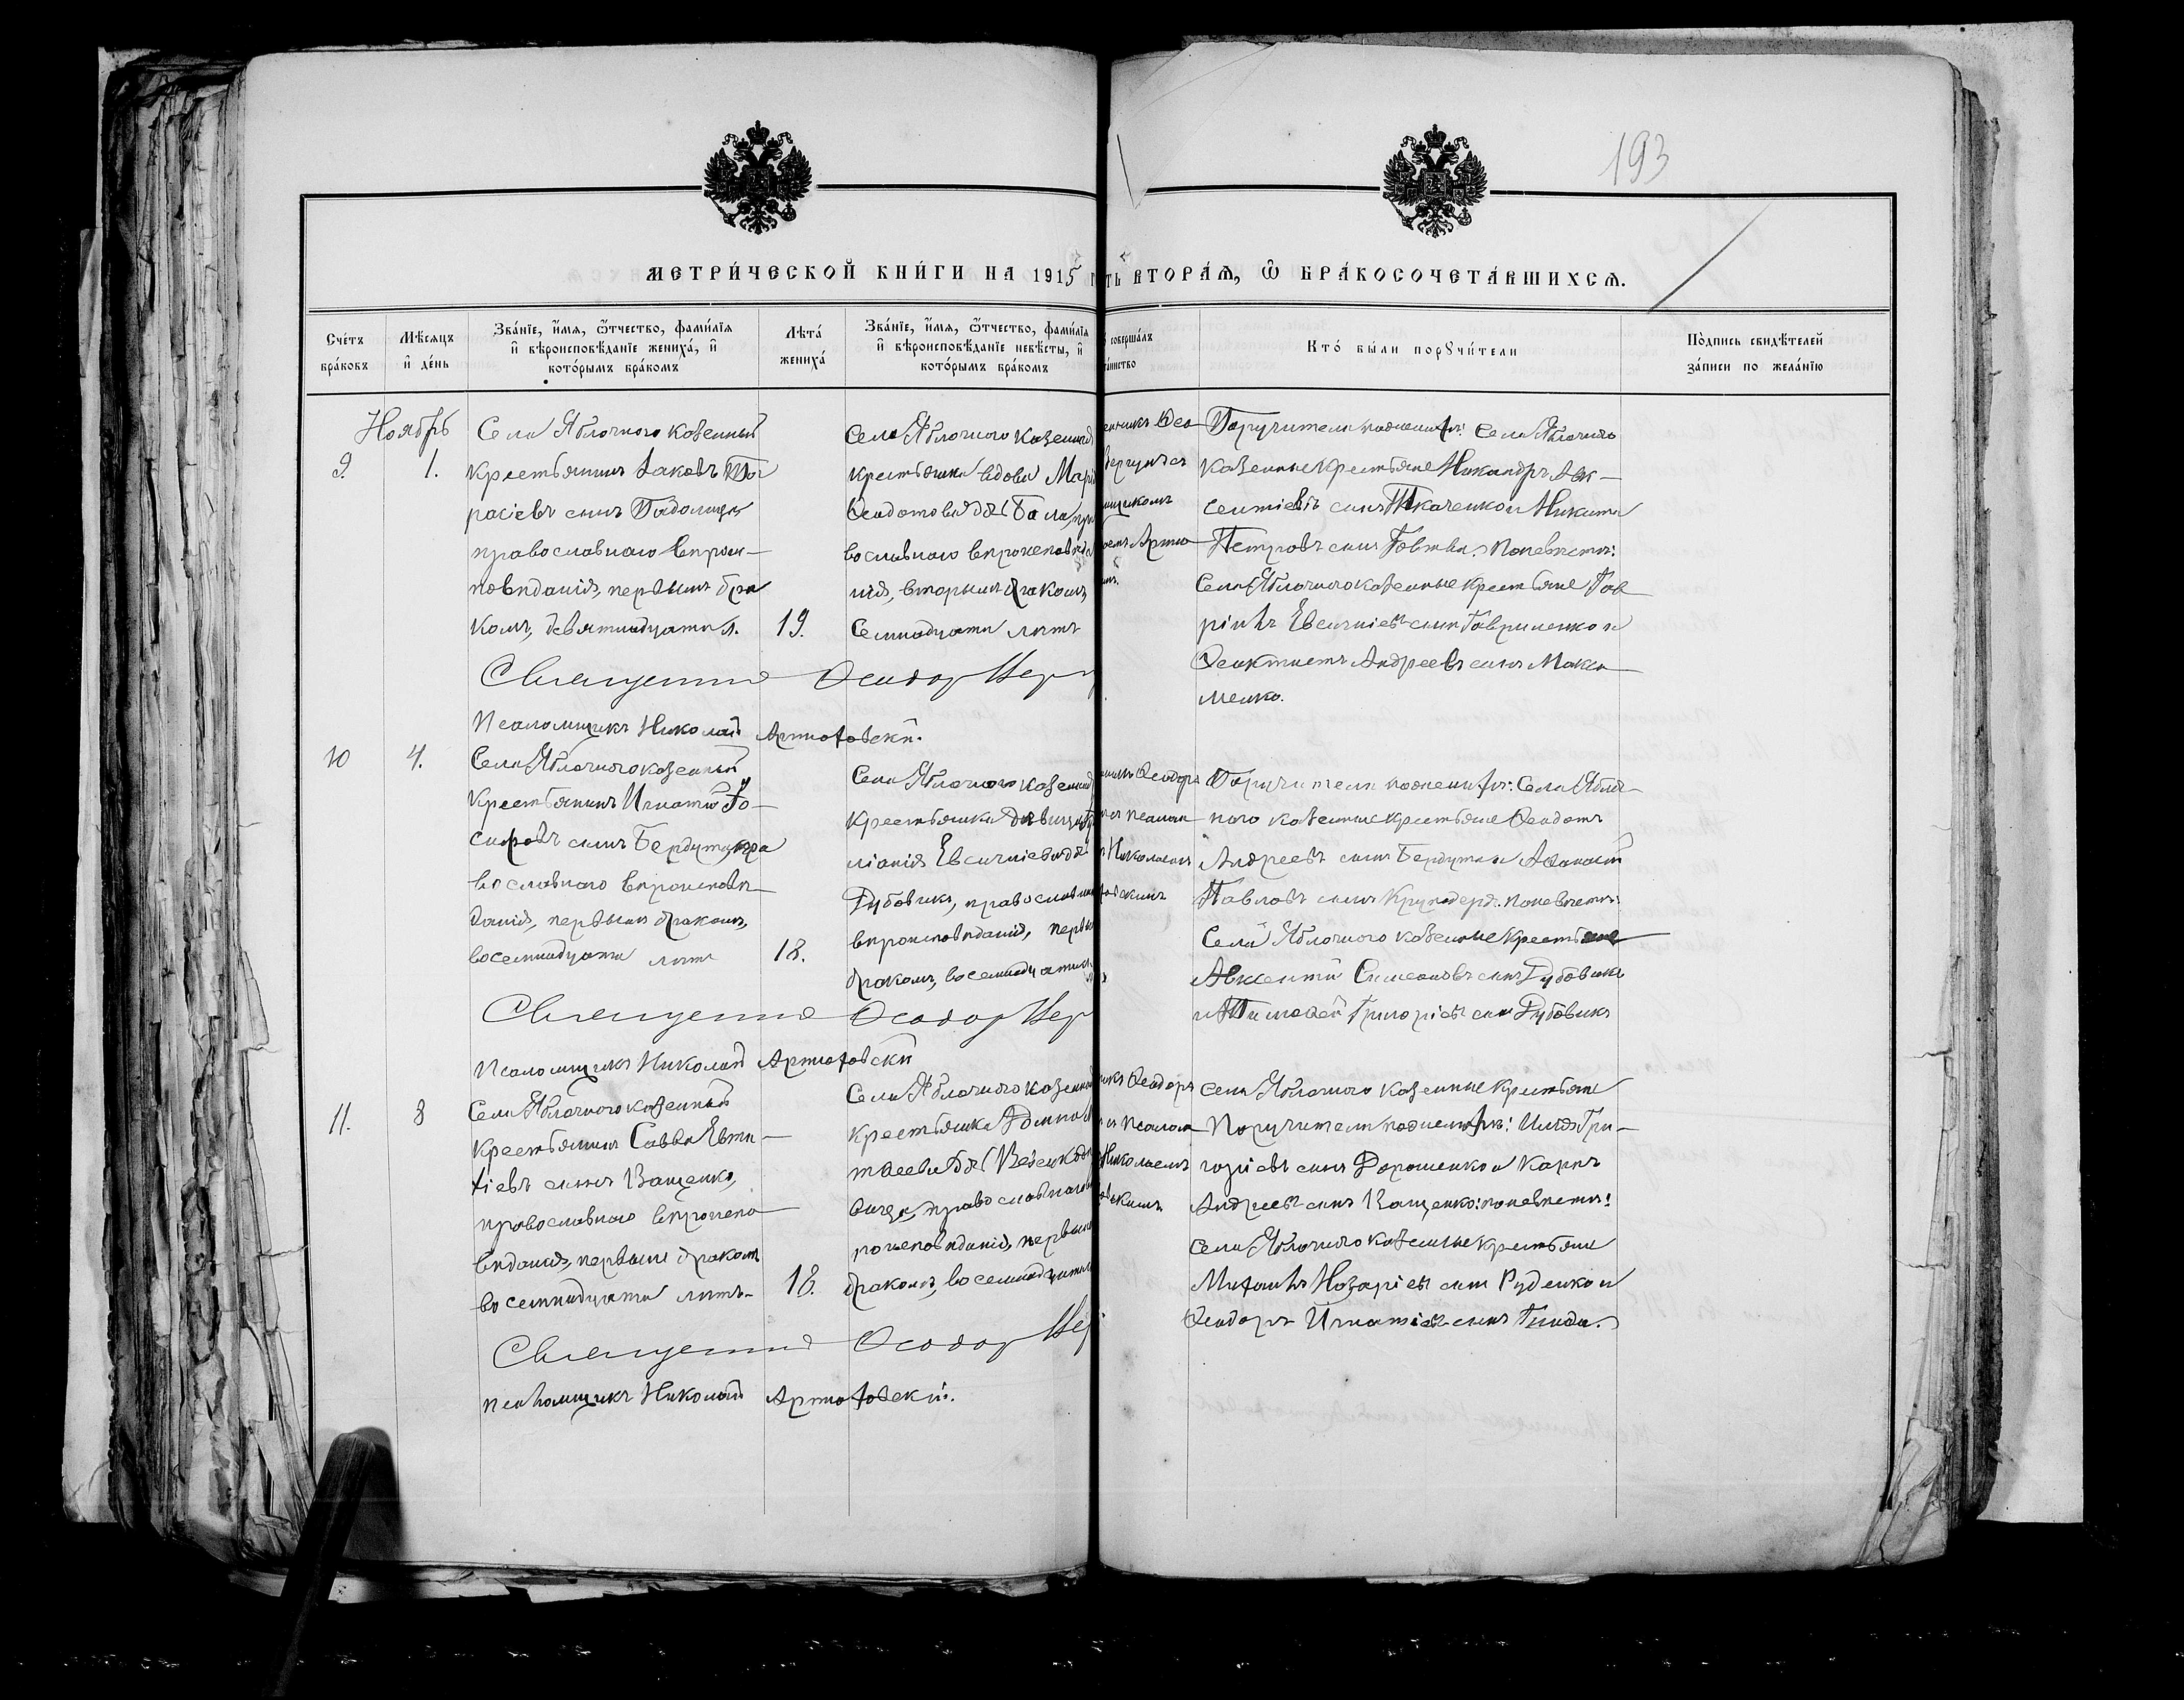 193
МЕТРИ́ЧЕСКОЙ КНИ́ГИ НА 1915 Г
ТЬ ВТОРА́Ѧ, Ѡ҆ БРА́КОСОЧЕТА́ВШИХСѦ.
Сче́тъ бра́ковъ
Мѣ́сяцъ и҆ де́нь
Зва́нїе, и҆́мѧ, ѻ҆́тчество, фами́лїѧ и҆ вѣроисповѣ́данїе жениха́, и҆ кото́рымъ бра́комъ
Лѣта́ жениха́
Зва́нїе, и҆́мѧ, ѻ҆́тчество, фами́лїѧ и҆ вѣроисповѣ́данїе невѣ́сты, и҆ кото́рымъ бра́комъ
соверша́лъ
та́инство
Кто́ бы́ли порꙋчи́тели
По́дпись свидѣ́телей за́писи по жела́нїю
Ноябрь
9.
1.
Села Яблочного казенный
крестьянинъ Іаковъ Та
расіевъ сынъ
православнаго вѣроис—
повѣданія, первымъ бра
комъ, девятнадцати л.
19.
Села Яблочного казенная
крестьянка вдова Марія
Ѳеодотова
вославнаго вѣроисповѣда
нія, вторымъ бракомъ,
Семнадцати лѣтъ
Поручители по женихѣ: Села Яблочного
казенные крестьяне Никандръ Авк—
сентіевъ сынъ Ткаченко и Никита
Петровъ сынъ Говтва. По невѣстѣ:
Села Яблочного казенные крестьяне Гав
ріилъ Евсигніевъ сынъ Гавриленко и
Ѳеоктистъ Андреевъ сынъ Макси
менко.
Священникъ Ѳеодоръ
Псаломщикъ Николай Артюховскій.
10
4.
Села Яблочного казенный
Крестьянинъ Игнатій Іо—
сифовъ сынъ Бердута, пра
вославнаго вѣроисповѣ—
данія, первымъ бракомъ,
восемнадцати лѣтъ
18.
Села Яблочного казенная
крестьянка дѣвица
ліанія Евсигніева
Дубовикъ, православнаго
вѣроисповѣданія, первымъ
бракомъ, восемнадцати
Поручители по женихѣ: Села Яблоч—
ного казенные крестьяне Ѳеодотъ
Андреевъ сынъ Бердута и Аѳанасій
Павловъ сынъ Круподеря. По невѣстѣ:
Села Яблочного казенные крестьяне
Авксентій Симеоновъ сынъ Дубовикъ
и Тимоѳей Григоріевъ сынъ Дубовикъ
Священникъ Ѳеодоръ
Псаломщикъ Николай Артюховскій
11.
8
Села Яблочного казенный
крестьянинъ Савва Евти—
хіевъ сынъ Ващенко,
православнаго вѣроиспо
вѣданія, первымъ бракомъ
восемнадцати лѣтъ
18.
Села Яблочного казенная
крестьянка Домна
вица, православнаго
роисповѣданія, первымъ
бракомъ, восемнадцати
Села Яблочного казенные крестьяне
Поручители по женихѣ: Илія Гри—
горіевъ сынъ Дорошенко и Карпъ
Андреевъ сынъ Ващенко: по невѣстѣ:
Села Яблочного казенные крестьяне
Михаилъ Назаріевъ сынъ Руденко и
Ѳеодоръ Игнатіевъ сынъ
Священникъ Ѳеодоръ
Псаломщикъ Николай Артюховскій.